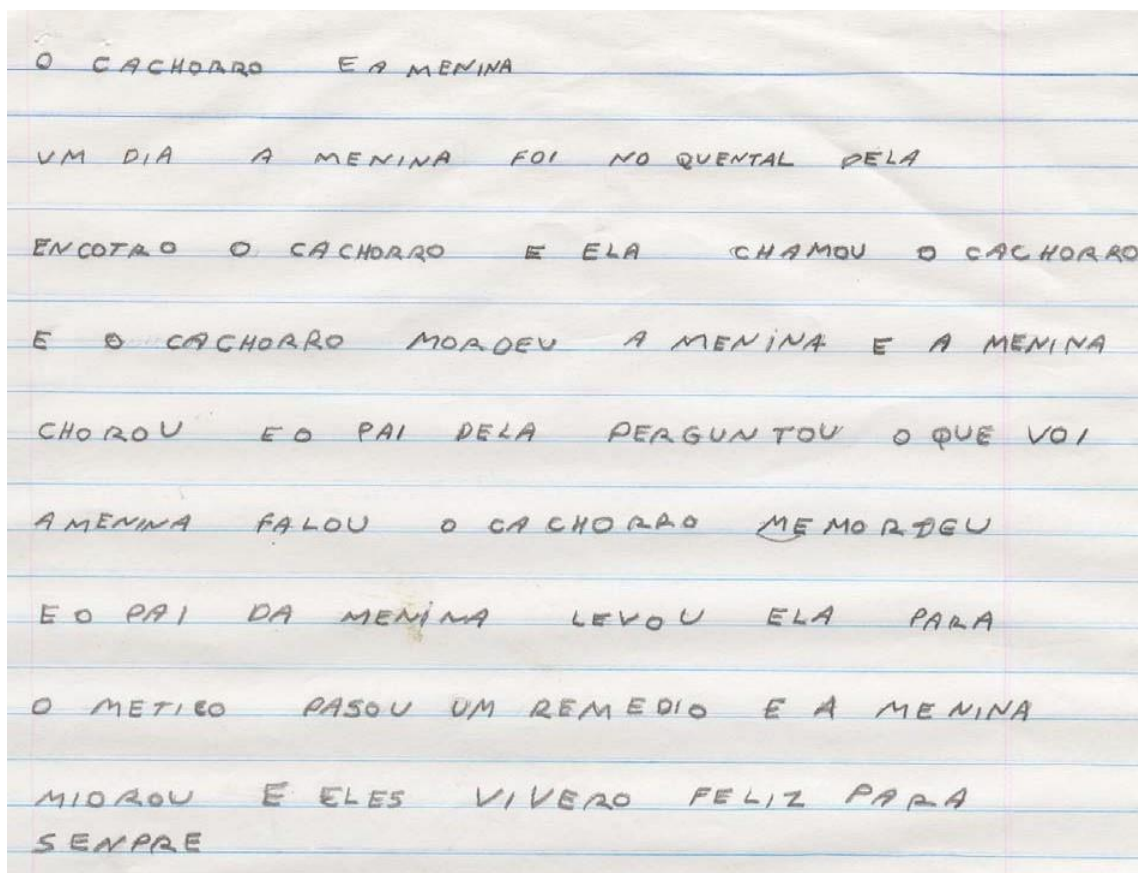 O CACHORRO E A MENINA
UM DIA A MENINA FOI NO QUENTAL DELA
ENCOTRO O CACHORRO E ELA CHAMOU O CACHORRO
E O CACHORRO MORDEU A MENINA E A MENINA
CHOROU E O PAI DELA PERGUNTOU O QUE VOI
A MENINA FALOU O CACHORRO ME MORDEU
E O PAI DA MENINA LEVOU ELA PARA
O METICO PASOU UM REMEDIO E A MENINA
MIOROU E ELES VIVERO FELIZ PARA
SENPRE